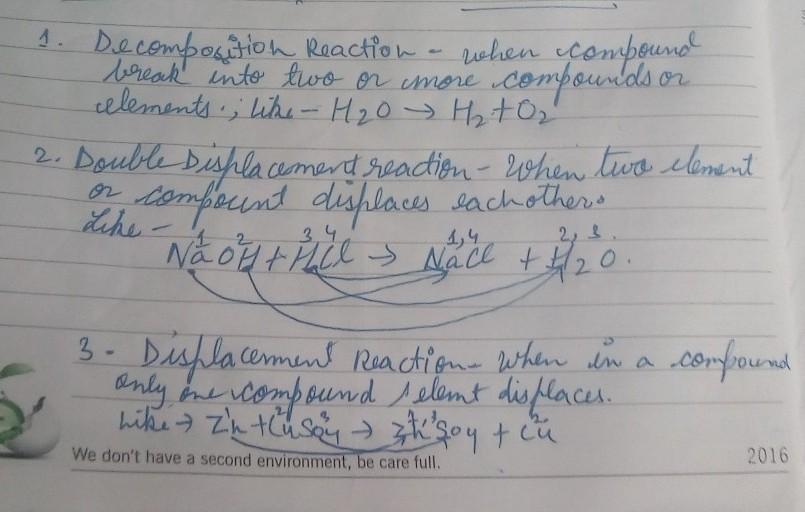 1. Decomposition Reaction - when compound
break into two or more compounds or
elements., like - H2O → H2 + O2
2. Double Displacement reaction - When two element
or compount displaces each other.
Like -
1 2 3 4 1,4 2, 3.
NaOH + HCl → NaCl + H2O.
3 - Displacement Reaction - when in a compound
only one compound / elemt displaces.
Like → Zn + CuSO4 → ZnSO4 + Cu
We don't have a second environment, be care full.
2016